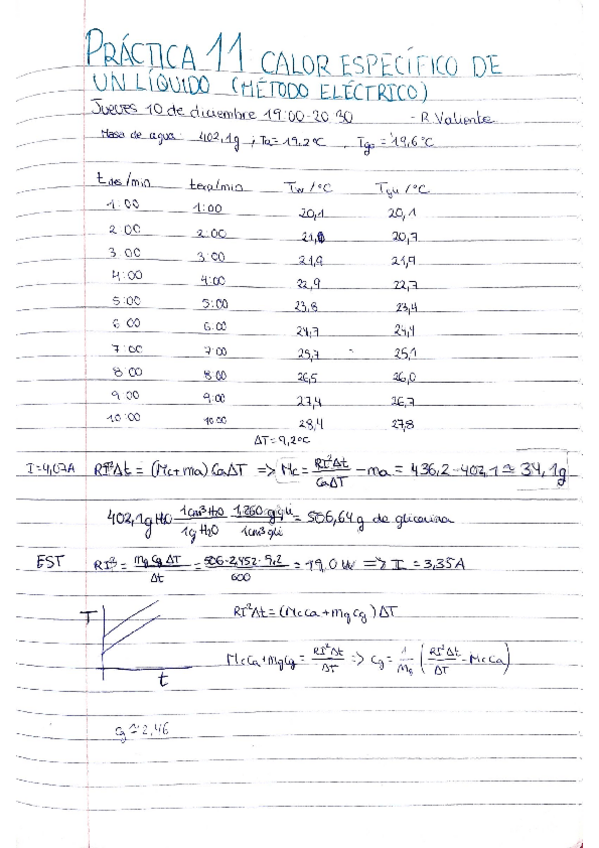 PRÁCTICA 11 CALOR ESPECÍFICO DE
UN LÍQUIDO (MÉTODO ELÉCTRICO)
Jueves 10 de diciembre 19:00-20:30 - R. Valiente
Masa de agua: 402,1g ; Ta = 19,2°C , = 19,6°C
t /min t /min Tw /°C /°C
1:00 1:00 20,1 20,1
2:00 2:00 20,7
3:00 3:00 21,9 21,9
4:00 4:00 22,9 22,7
5:00 5:00 23,8 23,4
6:00 6:00 24,7 24,4
7:00 7:00 25,7 25,1
8:00 8:00 26,5 26,0
9:00 9:00 27,4 26,7
10:00 10:00 28,4 27,8
ΔT = 9,2°C
I=4,07A RI²Δt = (Mc+ma) Ca ΔT => Mc = RI²Δt / CaΔT - ma = 436,2 - 402,1 ≃ 34,1g
402,1g H2O 1cm³ H2O / 1g H2O 1,260 g gli / 1cm³ gli = 506,64 g de glicerina
EST RI² = mg Cg ΔT / Δt = 506·2,452·9,2 / 600 = 19,0 W => I = 3,35A
RI²Δt = (McCa + mgCg) ΔT
T
McCa + MgCg = RI²Δt / ΔT => Cg = 1 / Mg (RI²Δt / ΔT - McCa)
t
Cg ≃ 2,46